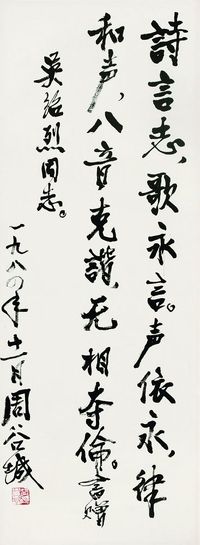 詩言志,歌永言。声依永,律
和声,八音克諧,无相夺倫。書贈
吴治烈同志。
一九八〇年十一月周谷城